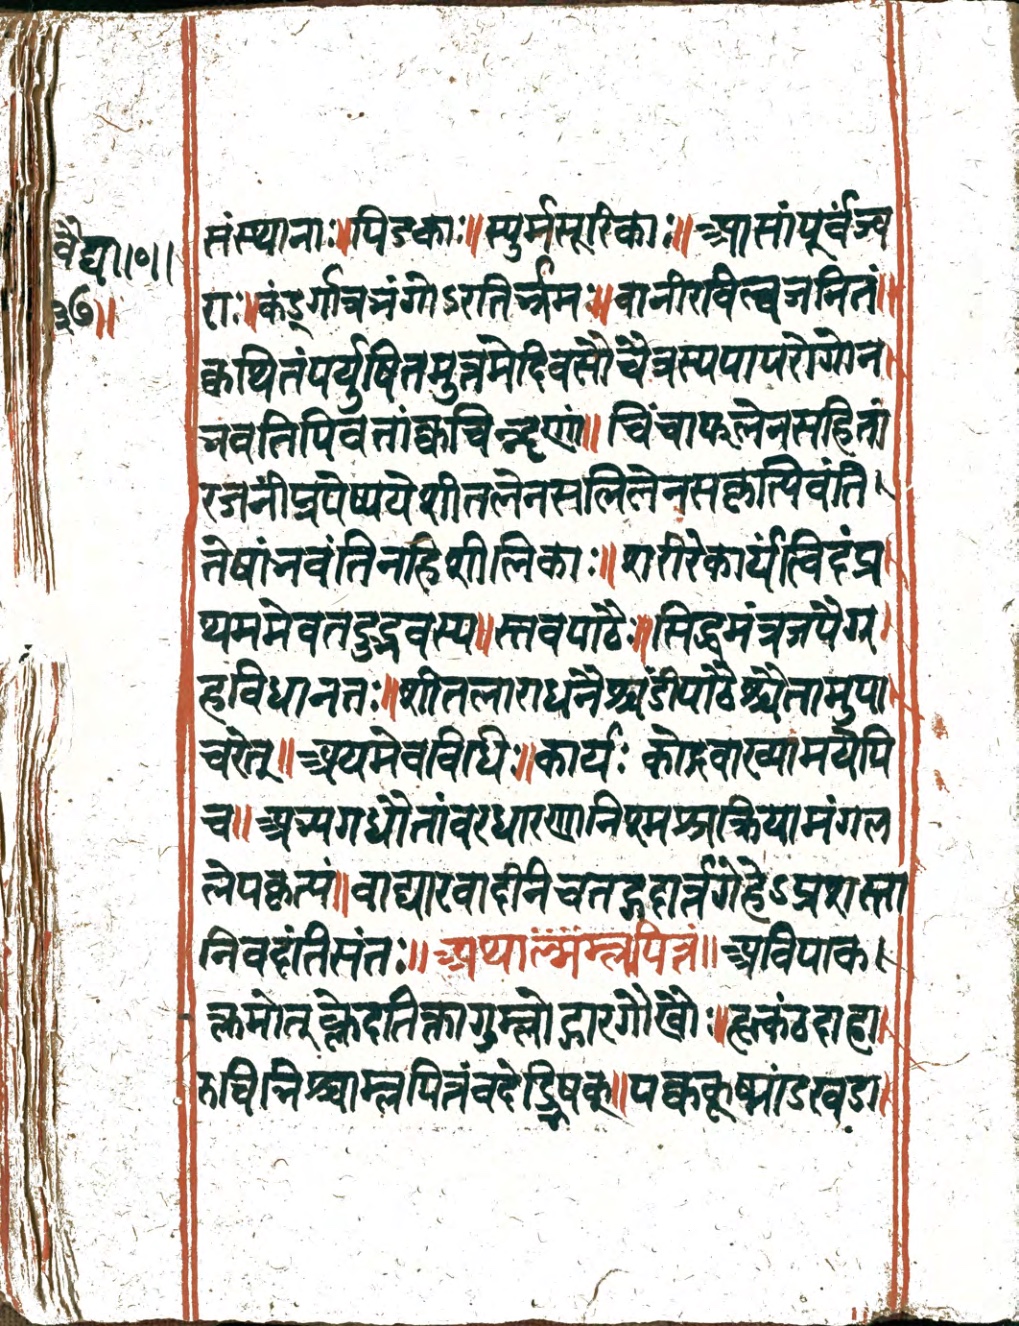 वैद्या॥०॥
३७॥
संस्थानाः॥पिडकाः॥स्युर्मसूरिकाः॥आसांपूर्वज्व
राः॥कंडूर्गात्रभंगोऽरतिर्भ्रमः॥वानीरविल्वजनितं॥
क्वथितंपर्युषितमुत्तमेदिवसौचैत्रस्यपापरोगोन
भवतिपिवतांक्वचिन्नृणां॥चिंचाफलेनसहितां
रजनींप्रपेष्यये शीतलेनसलिलेनसकृत्पिवंति।
तेषांभवंतिनहिशीतलिकाः॥शरीरेकार्यंत्विदंप्र
थममेवतदुद्भवस्य॥स्तवपाठैः॥सिद्धमंत्रजपैगृ
हविधानतः॥शीतलाराधनैश्चंडीपाठैश्चैतामुपा
चरेत्॥अयमेवविधिः॥कार्यः कोद्रवाख्यामयेपि
च॥अभ्यगधौतांवरधारणानिश्मश्रुक्रियामंगल
लेपकृत्यं॥वाद्यारवादीनिचतद्गदार्त्तगेहेऽप्रशस्ता
निवदंतिसंतः॥अथाम्लपित्तं॥अविपाक
क्लमोत्क्लेदतिक्तागुम्लोद्गारगौरवैः॥हृत्कंठदाहा
रुचिभिश्चाम्लपित्तंवदेद्भिषक्॥पक्वकूष्मांडखडा